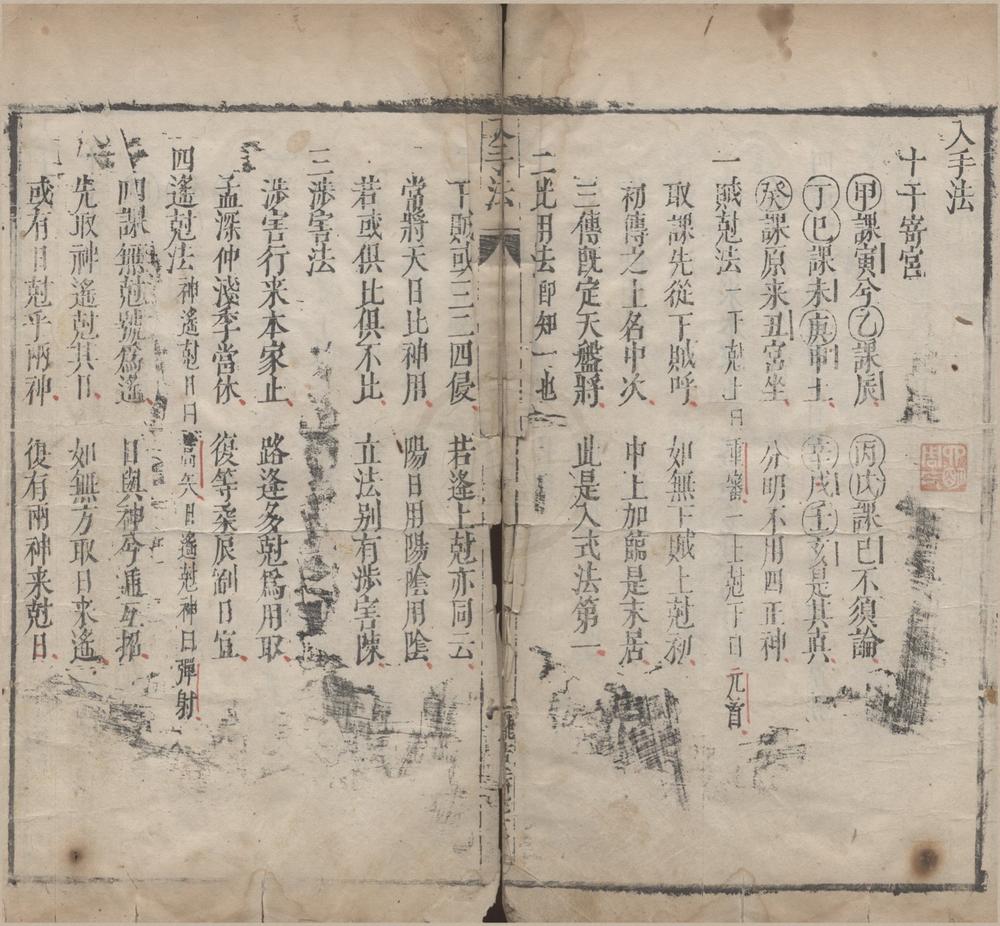 入手法
十干寄宮
甲課寅兮乙課辰　丙戊課巳不須論
丁巳課未庚申上　辛戌壬亥是其真
癸課原来丑宮坐　分明不用四正神
一賊尅法　一下尅上曰重審　一上尅下曰元首
取課先從下賊呼　如無下賊上尅初
初傳之上名中次　中上加臨是末居
三傳旣定天盤將　此是入式法第一
二比用法　即知一也
入手法
下賊或三二四侵　若逢上尅亦同云
常將天日比神用　陽日用陽陰用陰
若或俱比俱不比　立法別有涉害陳
三涉害法
涉害行来本家止　路逢多尅爲用取
孟深仲淺季當休　復等柔辰剛日宜
四遙尅法　神遙尅日曰蒿矢　日遙尅神曰彈射
四課無尅號爲遙　日與神兮遞互招
先取神遙尅其日　如無方取日来遙
或有日尅乎兩神　復有兩神来尅日